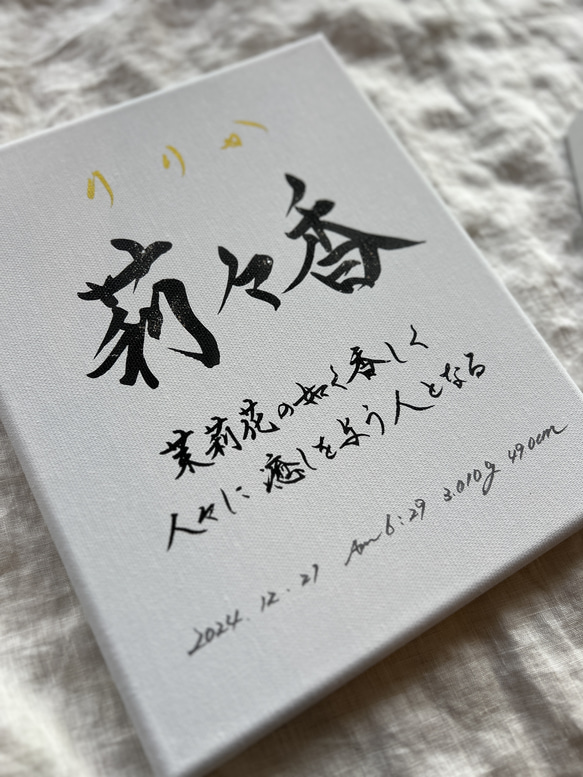 りりか
莉々香
茉莉花の如く香しく
人々に癒しを与う人となる
2024.12.27 Am 6:29 3.010g 49.0cm